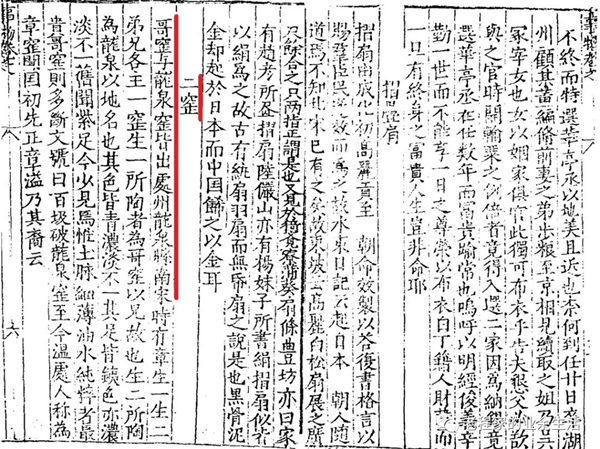 不終而特選華亭丞以地美且近也柰何到任廿日奔湖
州顧其畜編條前妻之弟步粮至京相見續取之姐乃吳
冢宰女也女以姻家俱官此獨可布衣乎告夫父故
與之官時開輸粟之例倍者竟得入選二家因為納銀竟
選華亭丞在任數年而富貴踰常也嗚呼以明經俊義辛
勤一世而不能享一日之尊崇以布衣白丁賤人財若而
一旦有終身之富貴人生豈非命耶
摺疊扇
摺扇由成化初高麗貢至 朝命效製以荅復書格言以
賜羣臣吳遂效而為之故水東日記云起日本 朝人隨
道焉不知北宋已有之矣故東坡云高麗白松扇展之廣
尺餘合之只兩指正謂是也又見於食寮蒲葵扇條豊坊亦曰家
有趙考所盛摺扇陸儼山亦有楊妹子所書絹摺扇似若
以絹為之故古有紈扇羽扇而無帋扇之說是也黑骨泥
金却起於日本而中国飾之以金耳
二窑
哥窑与龍泉窑皆出處州龍泉縣南宋時有章生一生二
弟兄各主一窑生一所陶者為哥窑以兄故也生二所陶
為龍泉以地名也其色皆青濃淡不一其足皆鐵色亦濃
淡不一舊聞紫足今少見焉惟土脉細薄油水純粹者最
貴哥窑則多斷文號曰百圾破龍泉窑至今温處人称為
章窑聞国初先正章溢乃其裔云
六